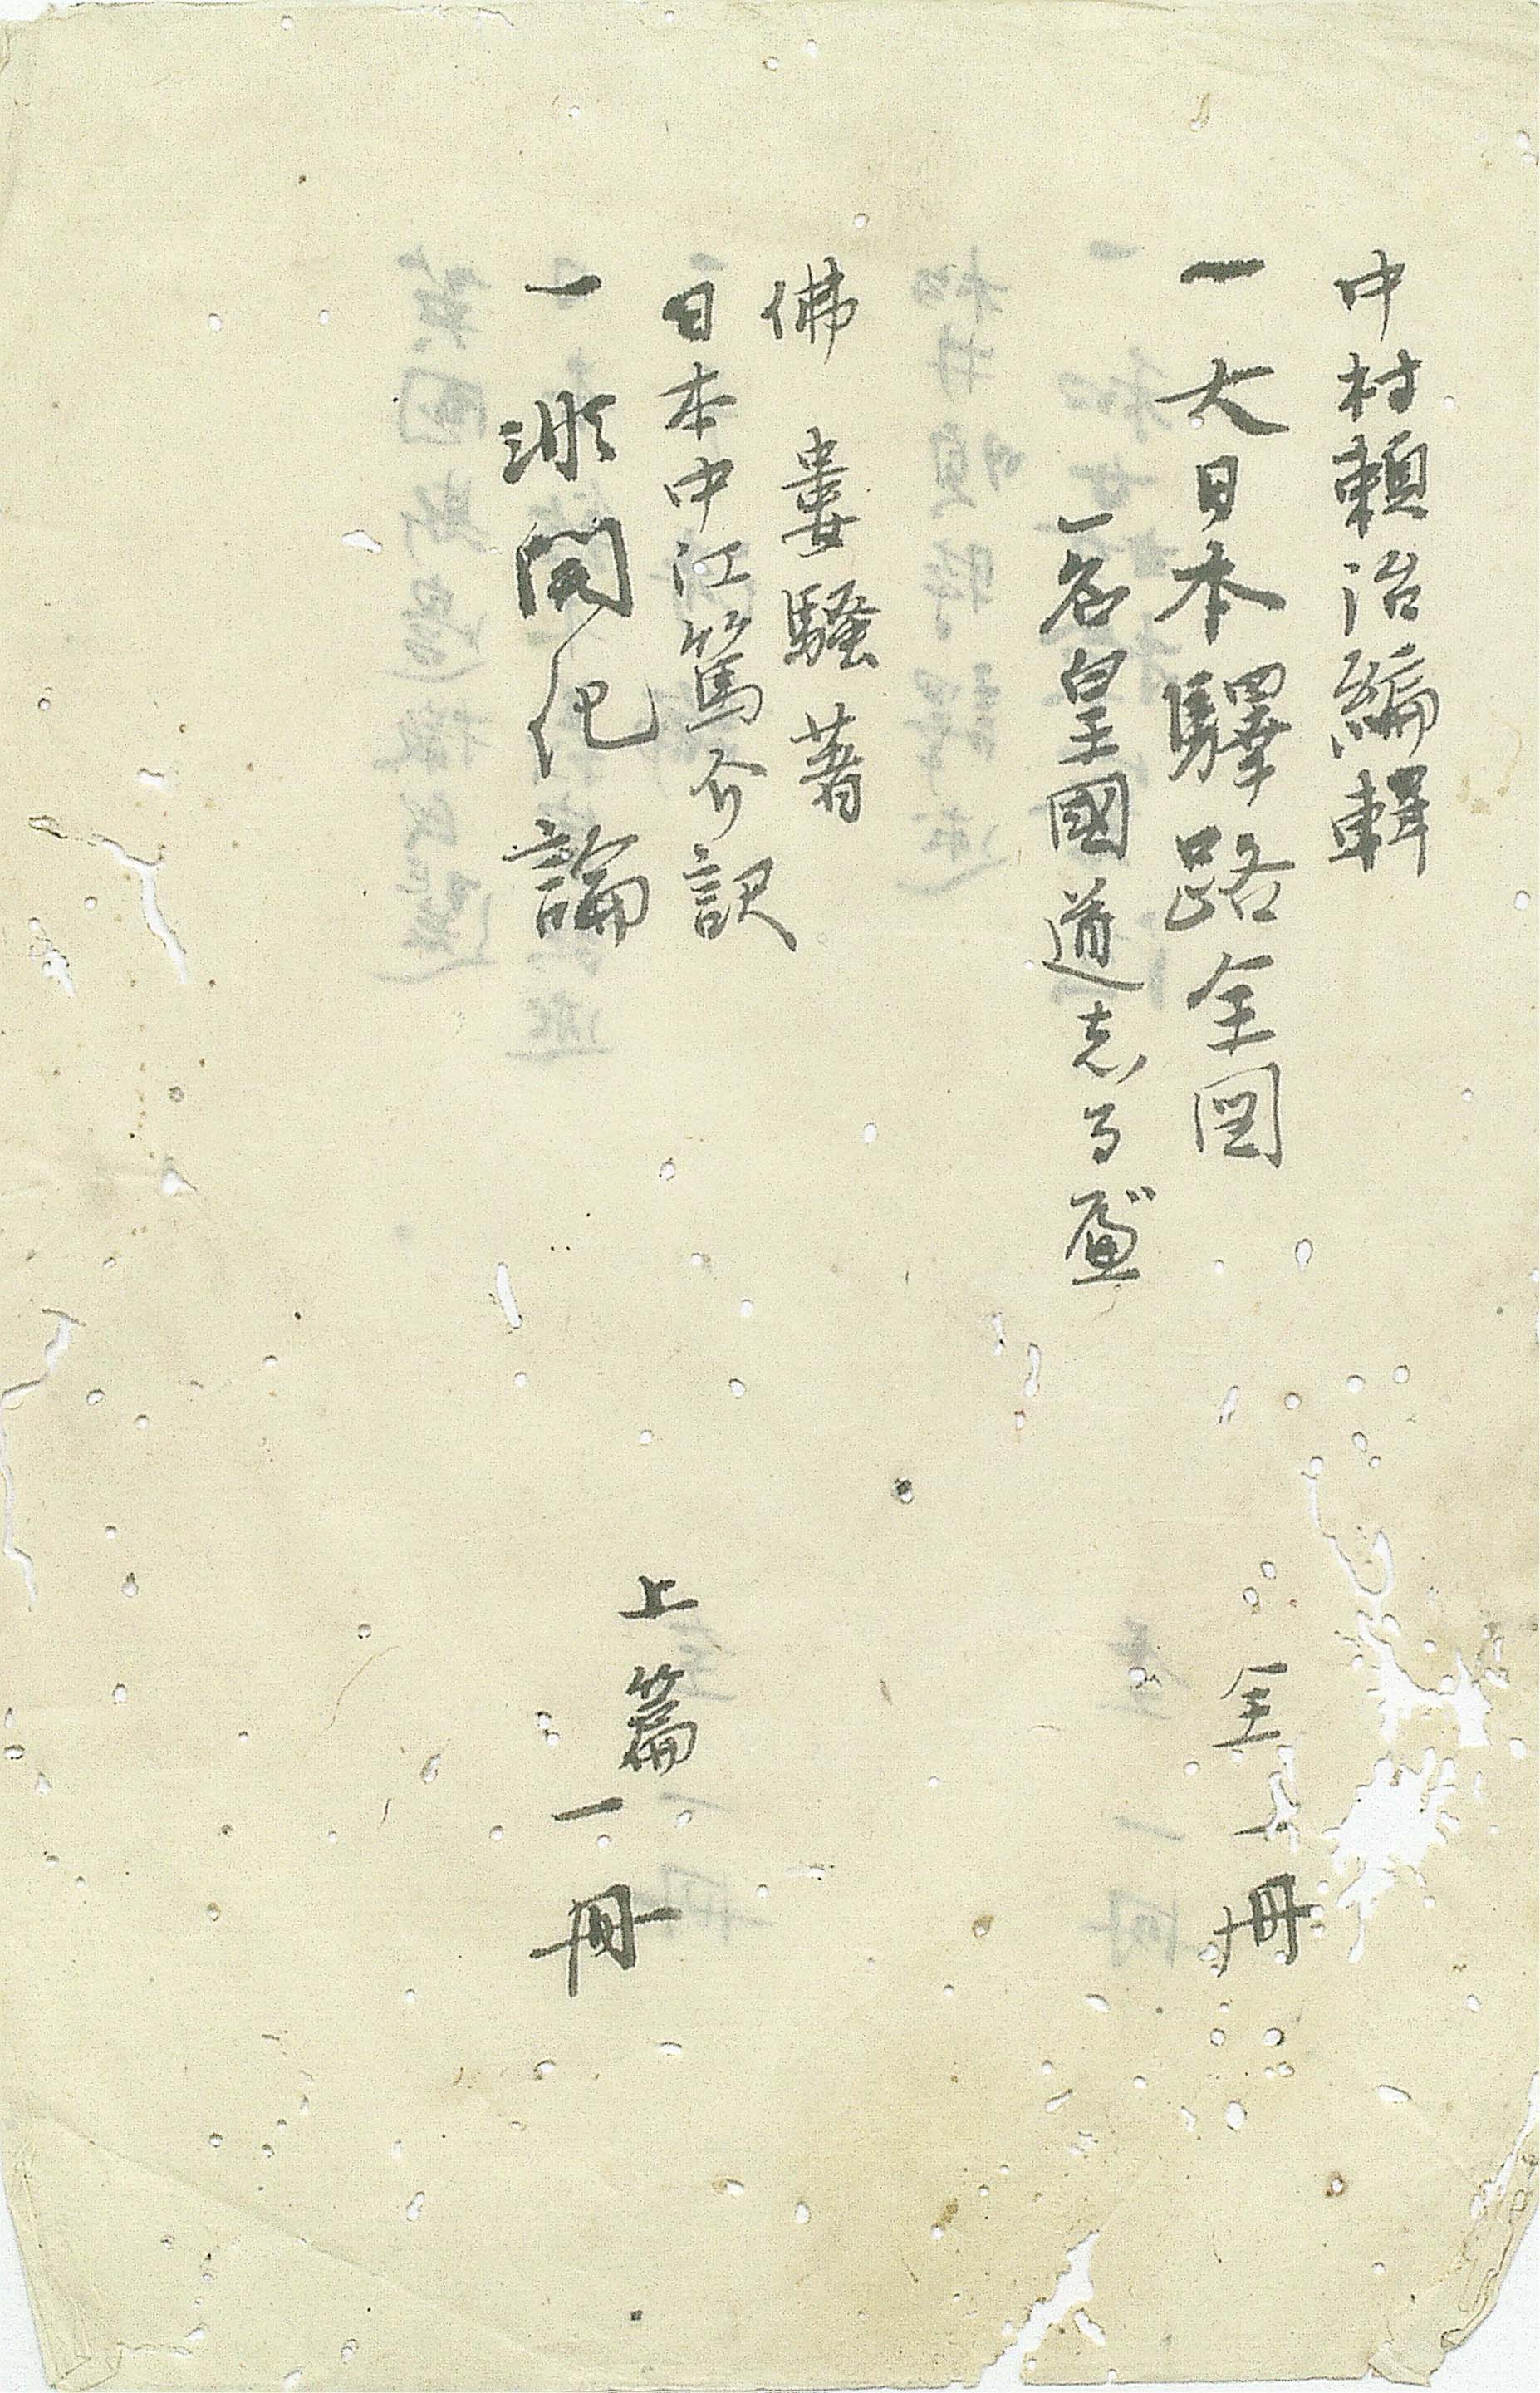 中村頼治編輯
一 大日本驛路全図 全 冊
一名皇國道志る
佛 婁騒著
日本中江篤介訳
一 非開化論 上篇一冊